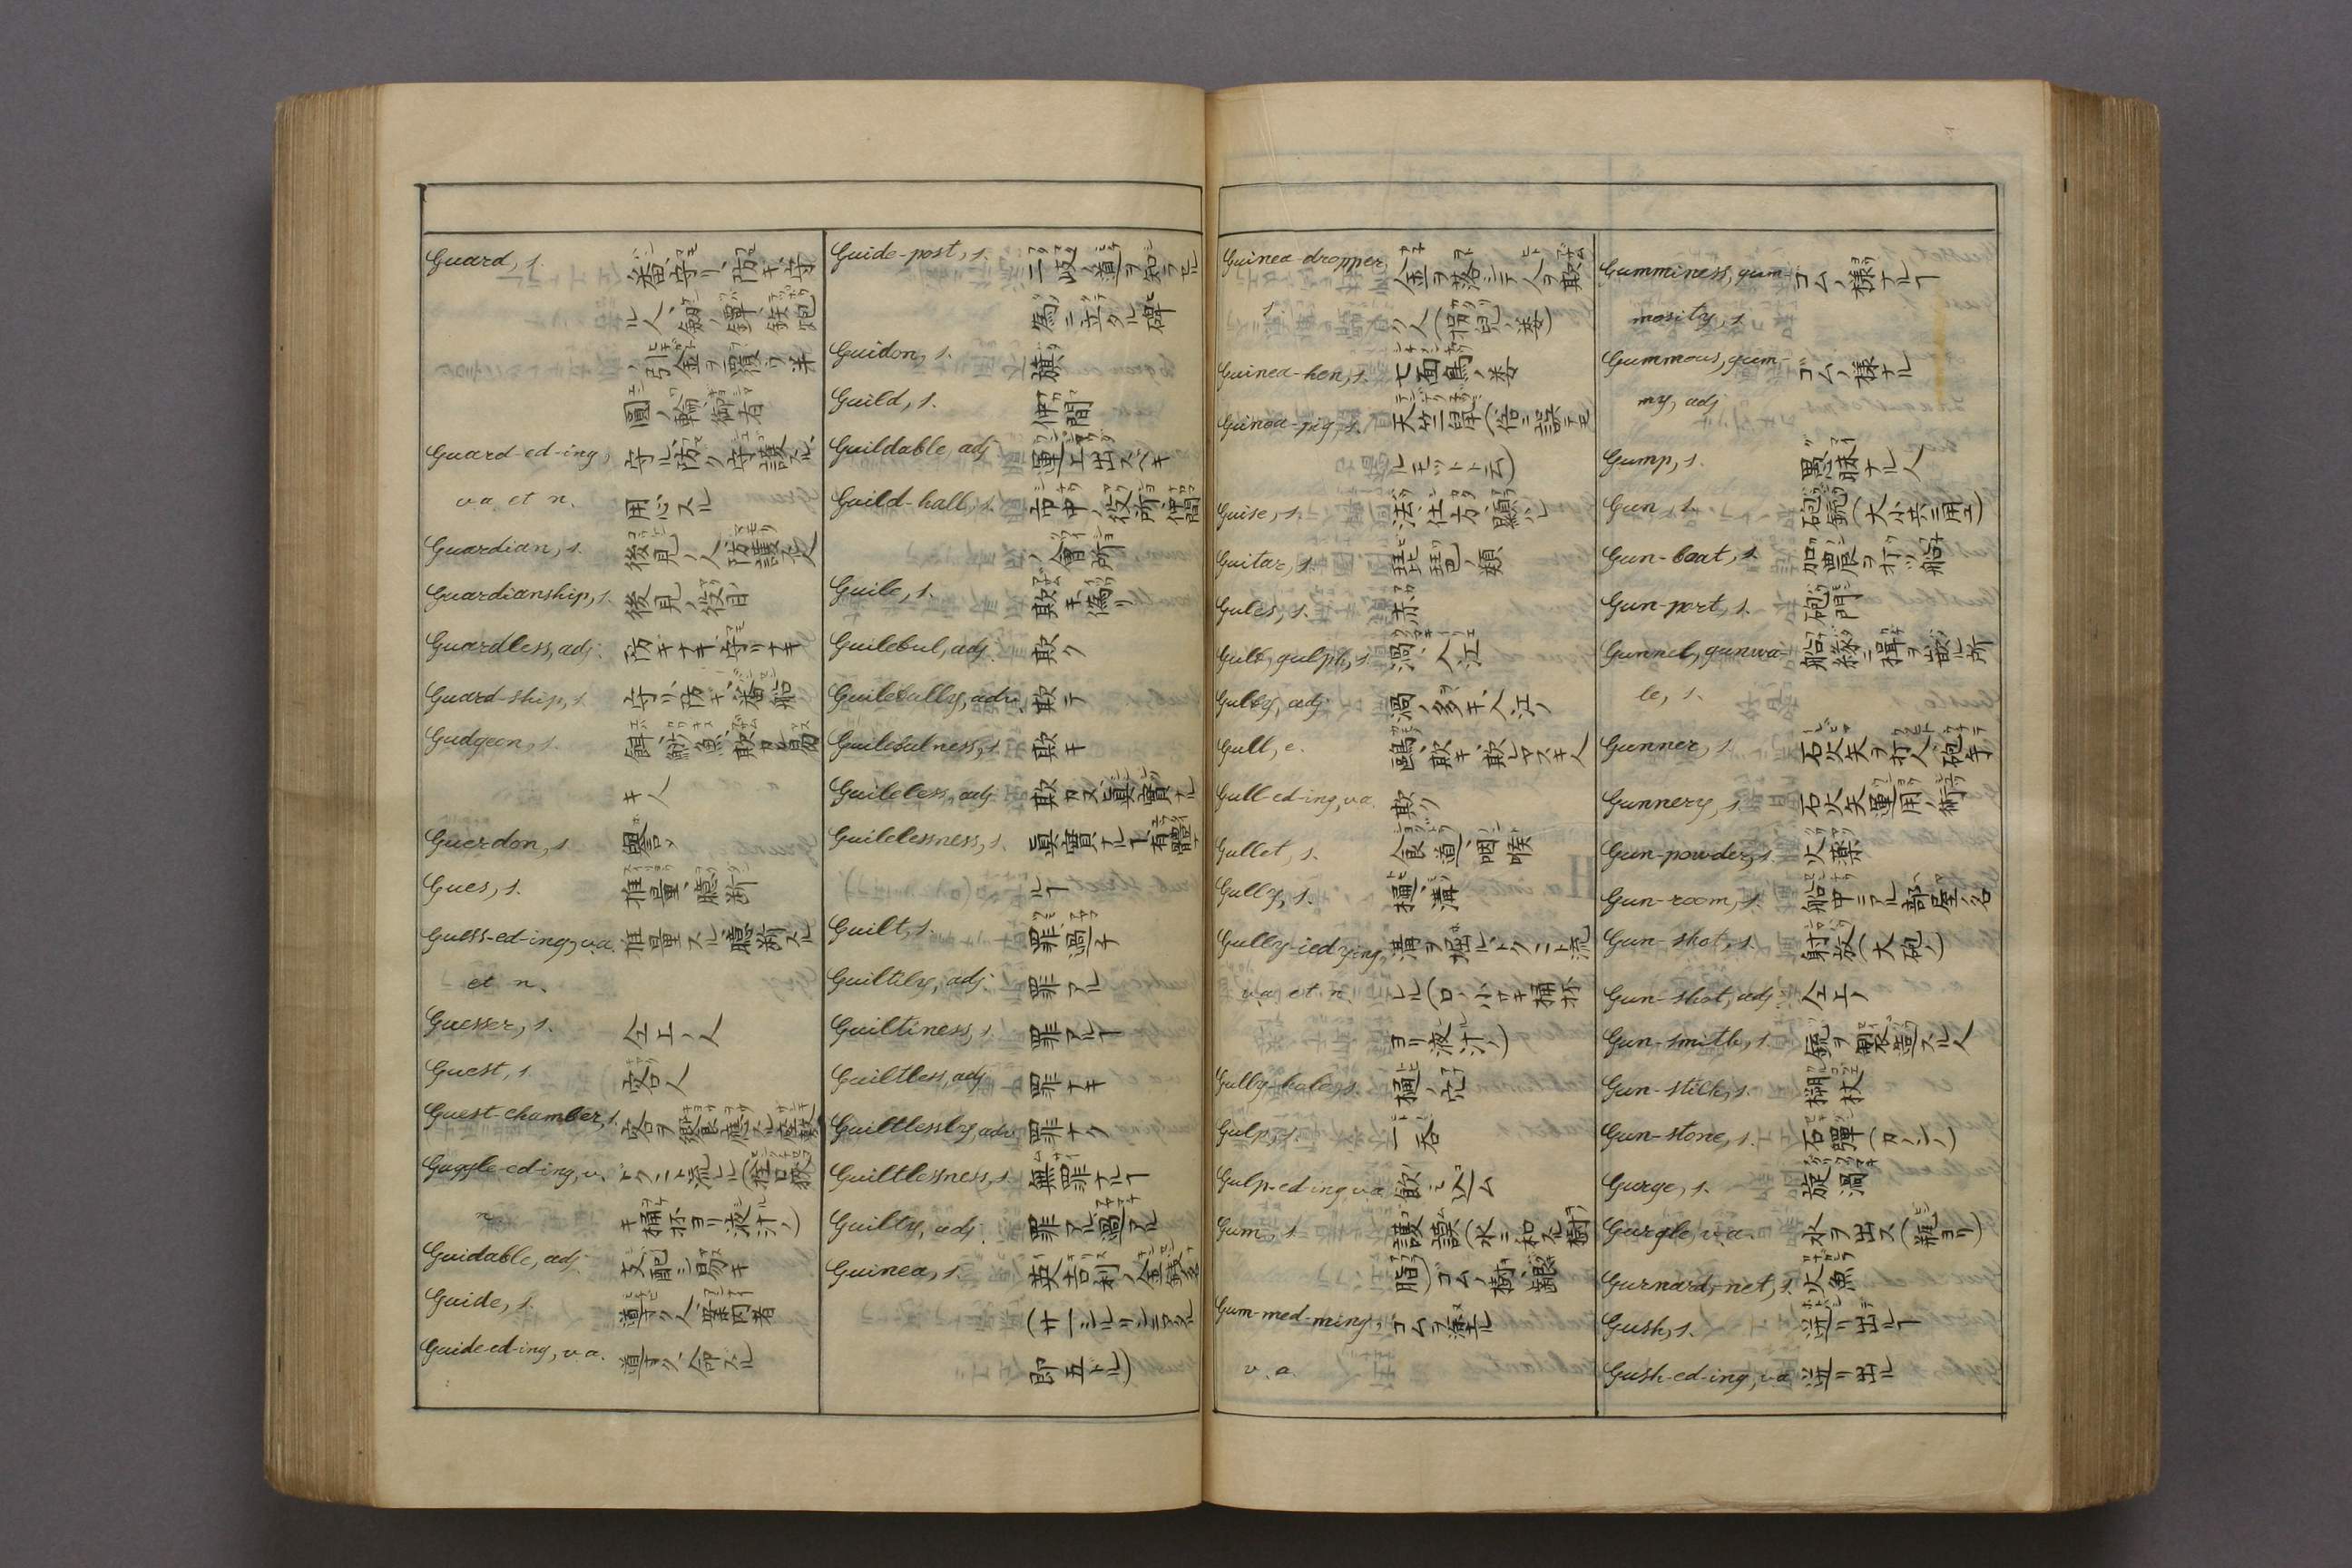 Guard, s. 番、守リ、防キ、守
ル人、劔ノ鍔、鉄炮
ノ引金ヲ覆ウ半
圓ノ輪、御者
Guard-ed-ing, 守ル、防ク、守護スル、
va et n. 用心スル
Guardian, s. 後見ノ人、防護人
Guardianship, s. 後見ノ役目
Guardless, adj. 防ギナキ、守リナキ
Guard-ship, s. 守リ、防キ、番船
Gudgeon, s. 餌、魚、欺カレ易
キ人
Guerdon, s. 譽
Gues, s. 推量、臆断
Guess-ed-ing, va. 推量スル、臆断スル
et n.
Guesser, s. 仝上ノ人
Guest, s. 客人
Guest-chamber, s. 客ヲ饗應スル座敷
Guggle-ed-ing, v. ドクニト流ルヽ(口狭
n キ桶抔ヨリ液汁ノ)
Guidable, adj. 支配シ易キ
Guide, s. 導ク人、案内者
Guide-ed-ing, v.a. 導ク、命スル
Guide-post, s. 二岐ノ道ヲ知ラセル
為ニ立タル碑
Guidon, s. 旗
Guild, s. 仲間
Guildable, adj. 運上出スベキ
Guild-hall, s. 市中ノ役所、仲間
ノ會所
Guile, s. 欺キ、偽リ
Guileful, adj. 欺ク
Guilefully, adv. 欺テ
Guilefulness, s. 欺キ
Guileless, adj. 欺カヌ、眞實ナル
Guilelessness, s. 眞實ナルヿ、有體ナ
ルヿ
Guilt, s. 罪、過チ
Guiltily, adj. 罪アル
Guiltiness, s. 罪アルヿ
Guiltless, adj. 罪ナキ
Guiltlessly, adv. 罪ナク
Guiltlessness, s. 無罪ナルヿ
Guilty, adj. 罪アル、過アル
Guinea, s. 英吉利ノ金錢名
(廿一シルリンニアタル
即五ドル)
Guinea-dropper, 金ヲ落シテ人ヲ欺
s. ク人(拐児ノ类)
Guinea-hen, s. 七面鳥ノ类
Guinea-pig, s. 天竺鼠(俗ニ誤テモ
ルモットト云)
Guise, s. 法、仕方、顕ハレ
Guitar, s. 琵琶ノ類
Gules, s. 赤
Gulf, gulph, s. 渦、入江
Gulfy, adj. 渦ノ多キ、入江ノ
Gull, s. 鷗、欺キ、欺レヤスキ人
Gull-ed-ing, va. 欺ク
Gullet, s. 食道、咽喉
Gully, s. 樋、溝
Gully-ied-ying, 溝ヲ掘ル、ドクニト流
va et n. レル(口ノ小サキ桶抔
ヨリ液汁ノ)
Gully-hole, s. 樋ノ穴
Gulp, s. 一呑
Gulp-ed-ing, va 飲ミ込ム
Gum, s. 護謨(水ニ和スル樹
脂)ゴムノ樹、齦
Gum-med-ming, ゴムヲ塗ル
v. a.
Gumminess, gum- ゴムノ様ナルヿ
mosity, s.
Gummous, gum- ゴムノ様ナル
my, adj
Gump, s. 愚昧ナル人
Gun, s. 砲銃(大小共ニ用ユ)
Gun-boat, s. 加農ヲ打ツ船
Gun-port, s. 砲門
Gunnel, gunwa- 船縁ニ楫ヲ嵌ル所
le, s.
Gunner, s. 石火矢ヲ打人、砲手
Gunnery, s. 石火矢運用ノ術
Gun-powder, s. 火藥
Gun-room, s. 船中ニアル部屋ノ名
Gun-shot, s. 射放(大砲ノ)
Gun-shot, adj. 仝上ノ
Gun-smith, s. 銃ヲ製造スル人
Gun-stick, s. 槊杖
Gun-stone, s. 石彈(カノンノ)
Gurge, s. 旋渦
Gurgle, v.a. 水ヲ出ス(瓶ヨリ)
Gurnard,-net, s. 火魚
Gush, s. 迸リ出ルヿ
Gush-ed-ing, va 迸リ出ル